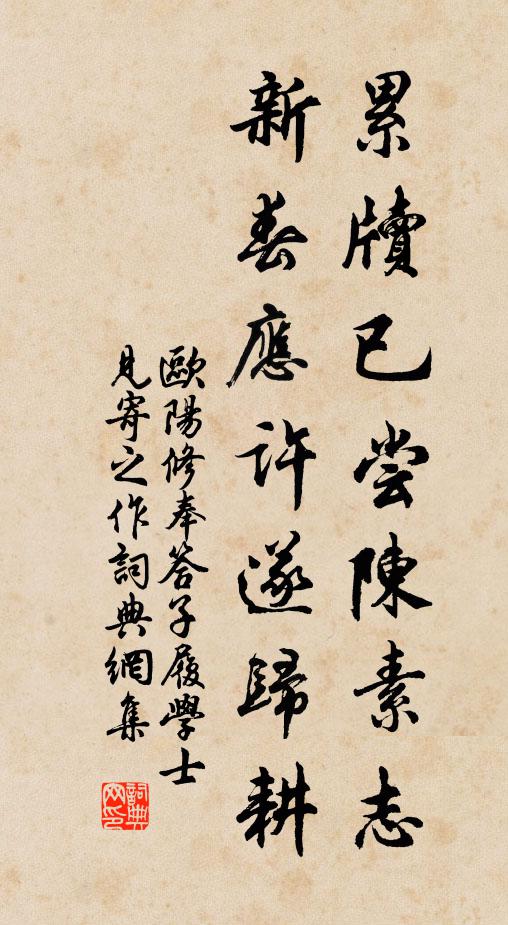 累牘已尝陳素志
新春應許遂歸耕
歐陽修奉答子履學士
見寄之作詞典網集
詞典网印